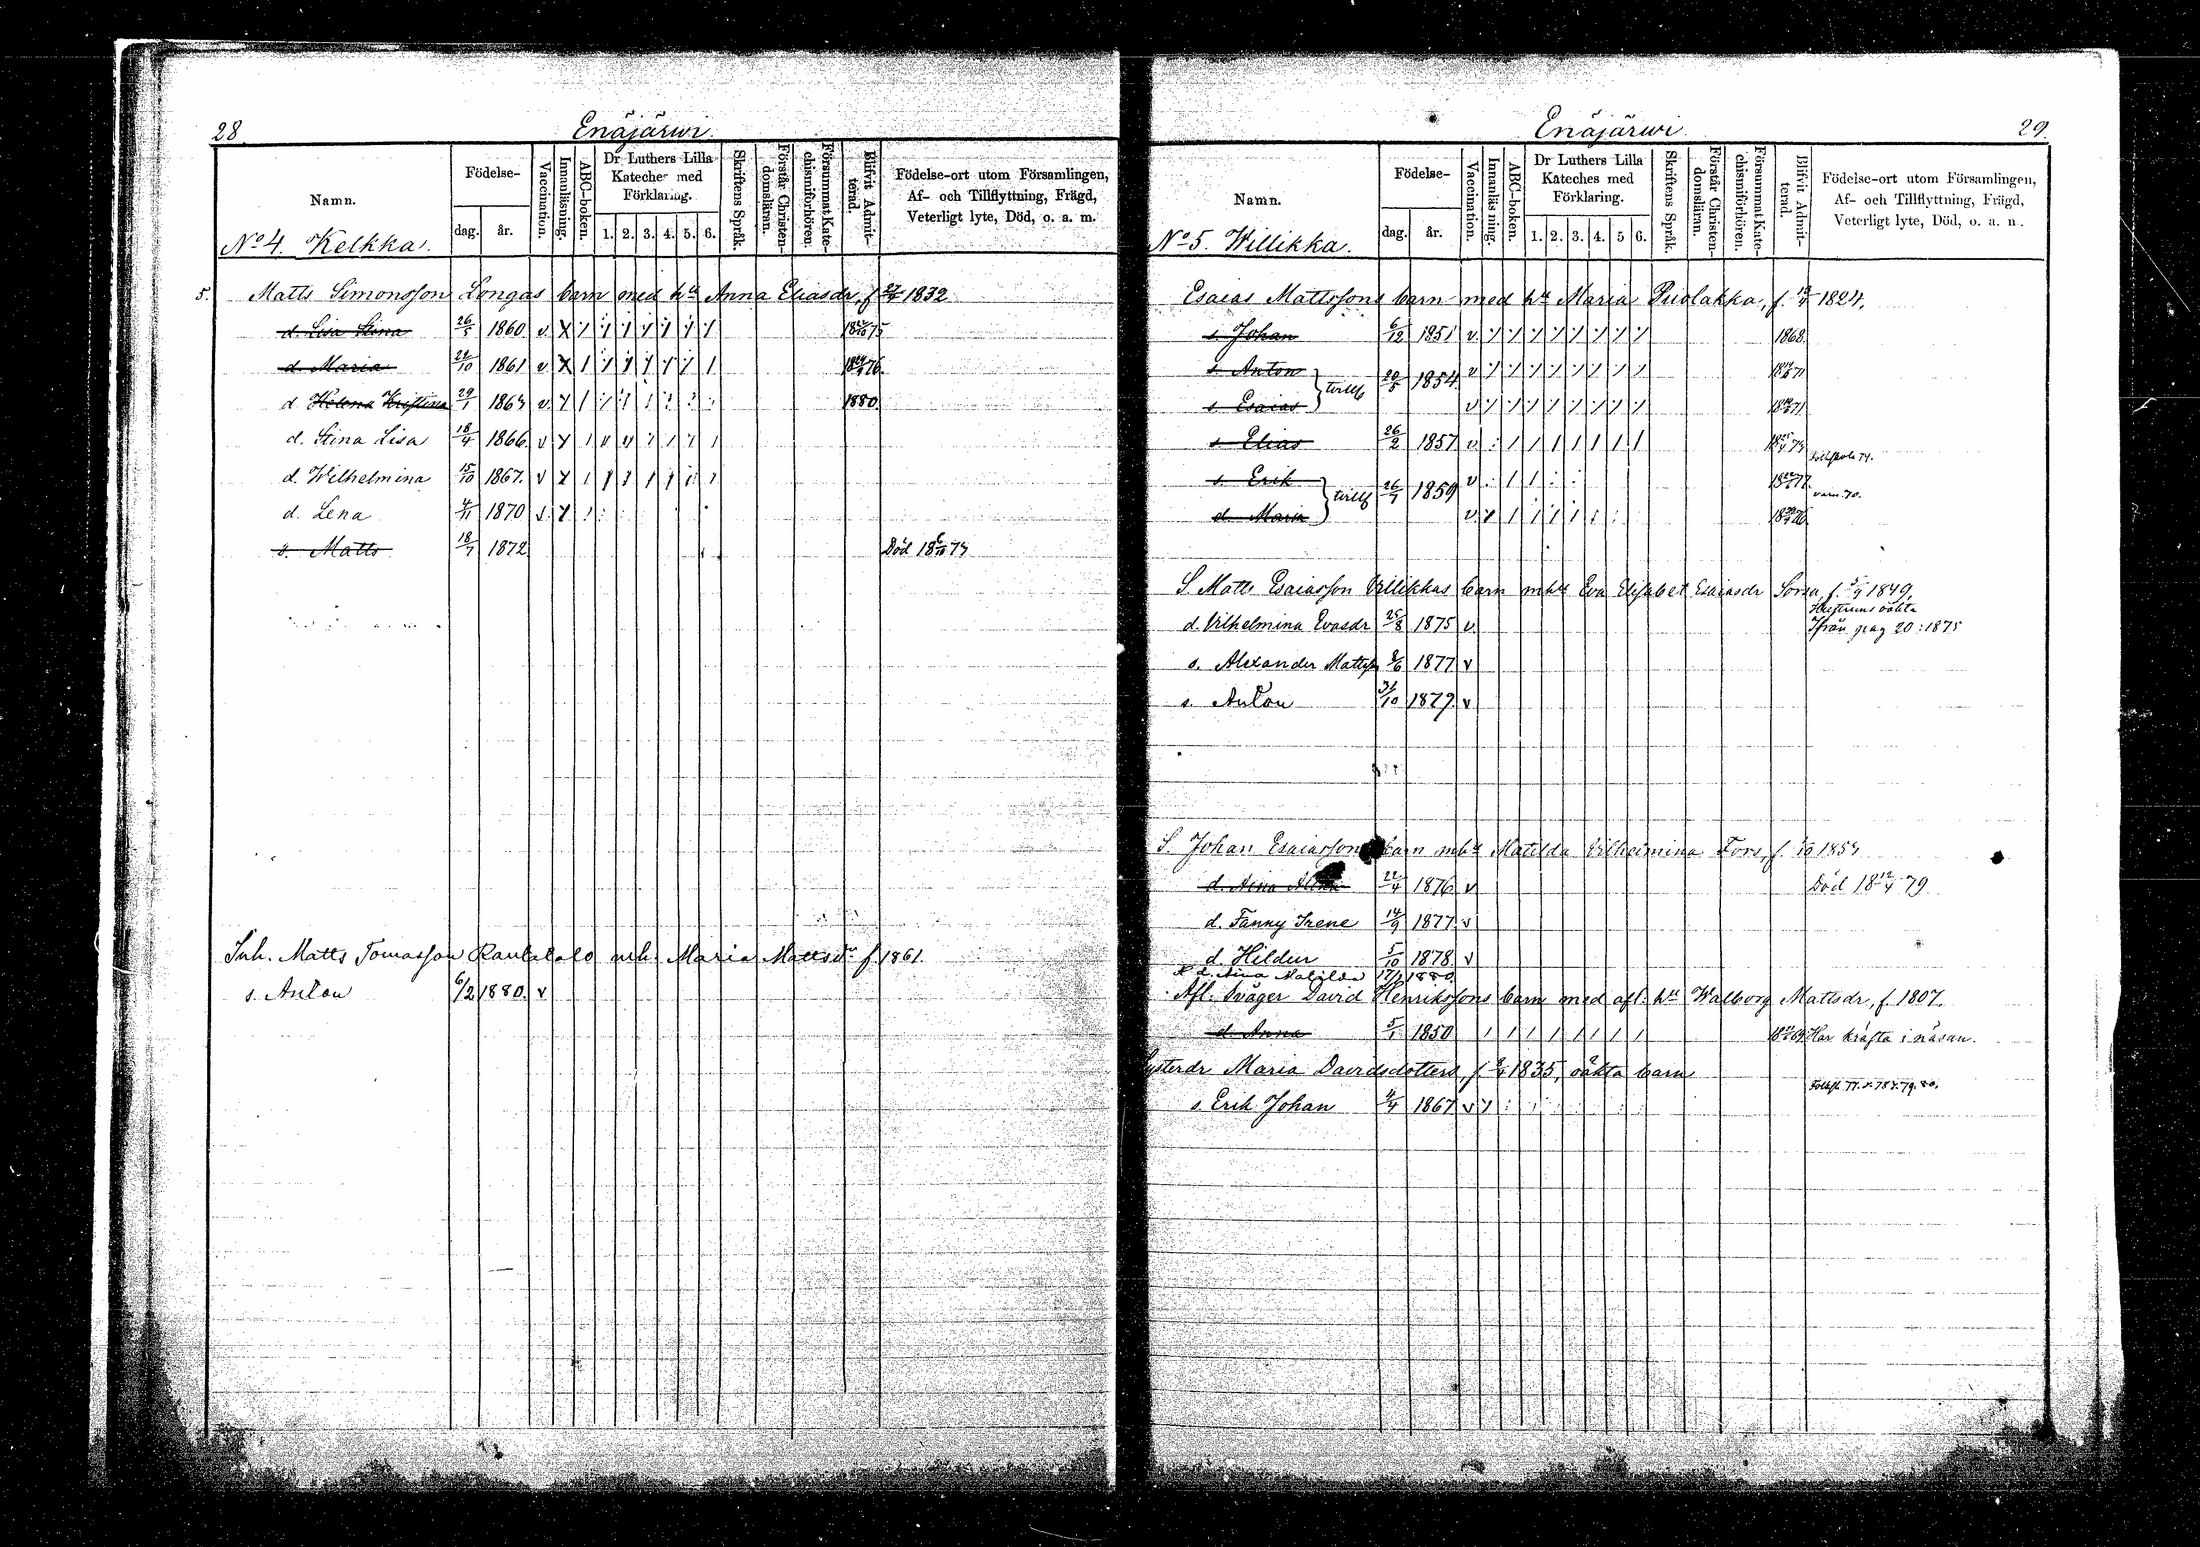 28.
Enäjärwi.
Namn.
Födelse-
dag.
år.
Vaccination.
Innanläsning.
ABC-boken.
Dr Luthers Lilla Kateches med Förklaring.
1. 2. 3. 4. 5. 6.
Skriftens Språk.
Förstår Christen-domsläran.
Försummat Kate-chismiförhören.
Blifvit Admit-terad.
Födelse-ort utom Församlingen, Af- och Tillflyttning, Frägd, Veterligt lyte, Död, o. a. m.
No 4. Kelkka.
5. Matts Simonsson Longas barn med hu Anna Eliasdr, f. 1832
d. Lisa Stina 26/5 1860 v. 75
d. Maria 22/10 1861 v. 76.
d. Helena Kristina 29/1 1864 v. 1880
d. Stina Lisa 18/4 1866 v
d. Wilhelmina 15/10 1867. v
d. Lena 4/11 1870 v.
s. Matts 18/7 1872 Död 18 6/10 74
Inh. Matts Tomasson Rautalalo mh. Maria Mattsdr f. 1861.
s. Anton 6/2 1880. v
Enäjärwi
29.
Namn.
Födelse-
dag.
år.
Vaccination.
Innanläsning.
ABC-boken.
Dr Luthers Lilla Kateches med Förklaring.
1. 2. 3. 4. 5 6.
Skriftens Språk.
Förstår Christen-domsläran.
Försummat Kate-chismiförhören.
Blifvit Admit-terad.
Födelse-ort utom Församlingen, Af- och Tillflyttning, Frägd, Veterligt lyte, Död, o. a. n.
No 5. Willikka.
Esaias Mattssons barn med hu Maria Puolakka, f. 1824,
s. Johan 6/12 1851 v. 1868.
s. Anton tvill. 20/5 1854. v 71
s. Esaias v 71
s. Elias 26/2 1857 v. 74
s. Erik tvill. 26/7 1859 v. 77. varn. 70.
d. Maria v. 76
S. Matts Esaiasson Villikkas barn mhu Eva Elisabet Esaiasdr Sorsa, f. 1849,
Hustruns oäkta
d. Vilhelmina Evasdr 25/8 1875 v. Ifrån pag 20: 1875
s. Alexander Mattss 2/6 1877 v
s. Anton 31/10 1879. v
S. Johan Esaiasson barn mhu Matilda Vilhelmina Fors, f. 1854
d. Aina 22/4 1876 v Död 18 12/4 79
d. Fanny Irene 14/9 1877. v
d. Hildur 5/10 1878 v
d. Aina Matilda 1880.
Afl. Svåger David Henrikssons barn med afl. hu Walborg Mattsdr, f. 1807.
d. Anna 5/1 1850 69 Har kräfta i näsan.
Systerdr Maria Davidsdotters, f. 1835, oäkta barn
s. Erik Johan 4/4 1867 v 77. 78. 79. 80.